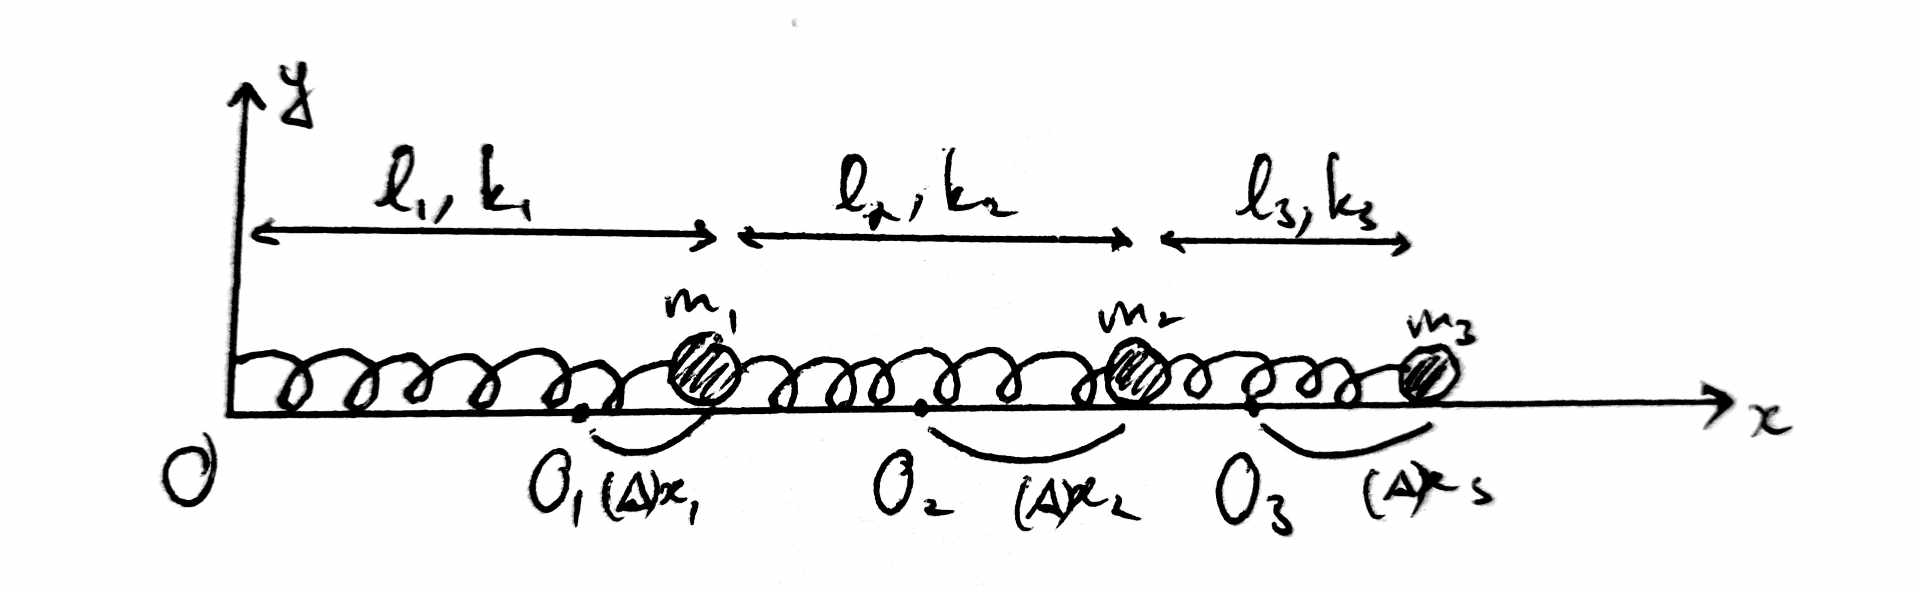 y
l₁, k₁ l₂, k₂ l₃, k₃
m₁ m₂ m₃
x
O O₁ (Δ)x₁ O₂ (Δ)x₂ O₃ (Δ)x₃